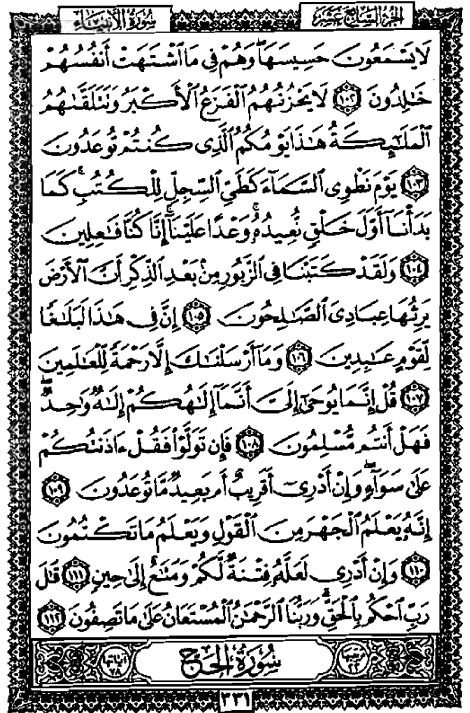 سُورَةُ الأَنبِيَاءِ
الجُزْءُ السَّابِعَ عَشَرَ
لَا يَسْمَعُونَ حَسِيسَهَا ۖ وَهُمْ فِي مَا ٱشْتَهَتْ أَنفُسُهُمْ
خَٰلِدُونَ ١٠٢ لَا يَحْزُنُهُمُ ٱلْفَزَعُ ٱلْأَكْبَرُ وَتَتَلَقَّىٰهُمُ
ٱلْمَلَٰٓئِكَةُ هَٰذَا يَوْمُكُمُ ٱلَّذِي كُنتُمْ تُوعَدُونَ
١٠٣ يَوْمَ نَطْوِي ٱلسَّمَآءَ كَطَيِّ ٱلسِّجِلِّ لِلْكُتُبِ ۚ كَمَا
بَدَأْنَآ أَوَّلَ خَلْقٍ نُّعِيدُهُۥ ۚ وَعْدًا عَلَيْنَآ ۚ إِنَّا كُنَّا فَٰعِلِينَ
١٠٤ وَلَقَدْ كَتَبْنَا فِي ٱلزَّبُورِ مِنۢ بَعْدِ ٱلذِّكْرِ أَنَّ ٱلْأَرْضَ
يَرِثُهَا عِبَادِيَ ٱلصَّٰلِحُونَ ١٠٥ إِنَّ فِي هَٰذَا لَبَلَٰغًا
لِّقَوْمٍ عَٰبِدِينَ ١٠٦ وَمَآ أَرْسَلْنَٰكَ إِلَّا رَحْمَةً لِّلْعَٰلَمِينَ
١٠٧ قُلْ إِنَّمَا يُوحَىٰٓ إِلَيَّ أَنَّمَآ إِلَٰهُكُمْ إِلَٰهٌ وَٰحِدٌ ۖ
فَهَلْ أَنتُم مُّسْلِمُونَ ١٠٨ فَإِن تَوَلَّوْا۟ فَقُلْ ءَاذَنتُكُمْ
عَلَىٰ سَوَآءٍ ۖ وَإِنْ أَدْرِيٓ أَقَرِيبٌ أَم بَعِيدٌ مَّا تُوعَدُونَ ١٠٩
إِنَّهُۥ يَعْلَمُ ٱلْجَهْرَ مِنَ ٱلْقَوْلِ وَيَعْلَمُ مَا تَكْتُمُونَ
١١٠ وَإِنْ أَدْرِي لَعَلَّهُۥ فِتْنَةٌ لَّكُمْ وَمَتَٰعٌ إِلَىٰ حِينٍ ١١١ قَٰلَ
رَبِّ ٱحْكُم بِٱلْحَقِّ ۗ وَرَبُّنَا ٱلرَّحْمَٰنُ ٱلْمُسْتَعَانُ عَلَىٰ مَا تَصِفُونَ ١١٢
ترتيبها ٢٢
سُورَةُ الحَجِّ
آياتها ٧٨
٣٣١